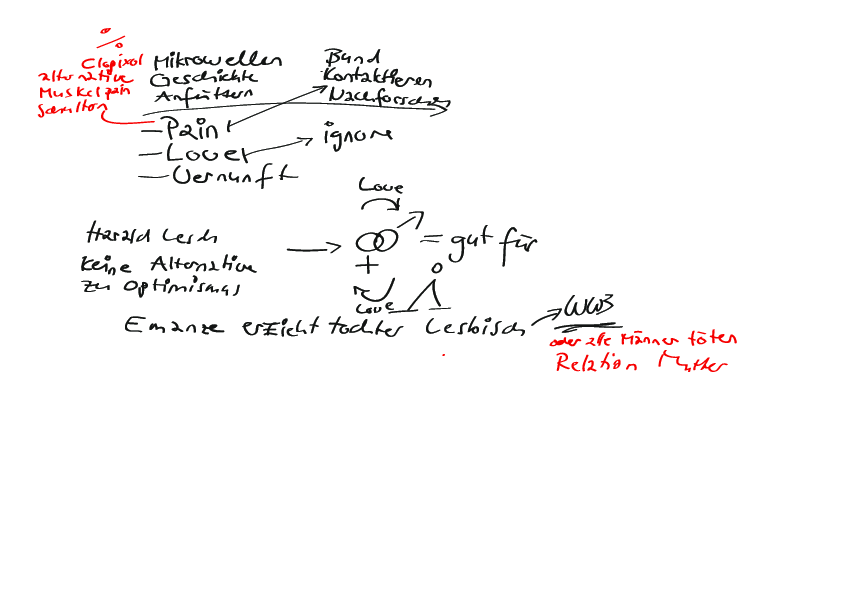 %
Clopixol
alternative
Muskelpain
Mikrowellen
Geschichte
Anfüttern
Bund
Kontaktieren
Nachforschen
– Pain
– Lover
– Vernunft
ignore
Harald Lesch
Keine Alternative
zu Optimismus
Love
+
= gut für
Love
Emanze erzieht tochter Lesbisch
WW3
oder alle Männer töten
Relation Mutter